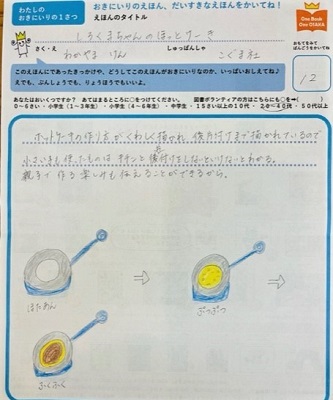 わたしの
おきにいりの1さつ
おきにいりのえほん、だいすきなえほんをかいてね！
えほんのタイトル
One Book
One OSAKA
しろくまちゃんのほっとけーき
さく・え
しゅっぱんしゃ
わかやま けん
こぐま社
おもてをみて
ばんごうをかいてね
12
このえほんにであったきっかけや、どうしてこのえほんがおきにいりなのか、いっぱいおしえてね♪
えでも、ぶんしょうでも、りょうほうでもいいよ。
あなたはおいくつですか？ あてはまるところに○をつけてください。 図書ボランティアの方はこちらにも○を→( )
0～6さい・小学生（1～3年生）・小学生（4～6年生）・中学生・15さい以上の10代・20～40代・50代以上
ホットケーキの作り方がくわしく描かれ、後片付けまで描かれているので
小さい子も使ったものは キチンと 片付けをしないといけないとわかる。
親子で作る楽しみも伝えることができるから。
ぽたあん
ぷつぷつ
ふくふく